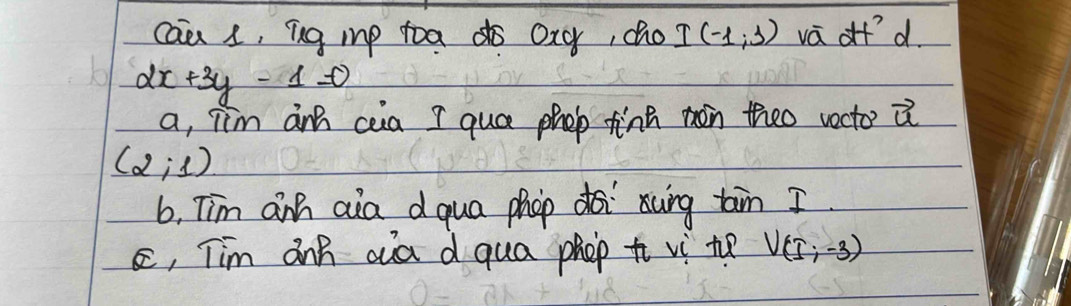 Câu 1, Trg mp toạ độ Oxy, cho I(-1;3) và đt² d.
2x+3y-1=0
a, Tìm ảnh của I qua phép tịnh tiến theo vectơ u⃗
(2;1)
b, Tìm ảnh của d qua phép đối xứng tâm I.
c, Tìm ảnh của d qua phép vị tự V(I;-3)